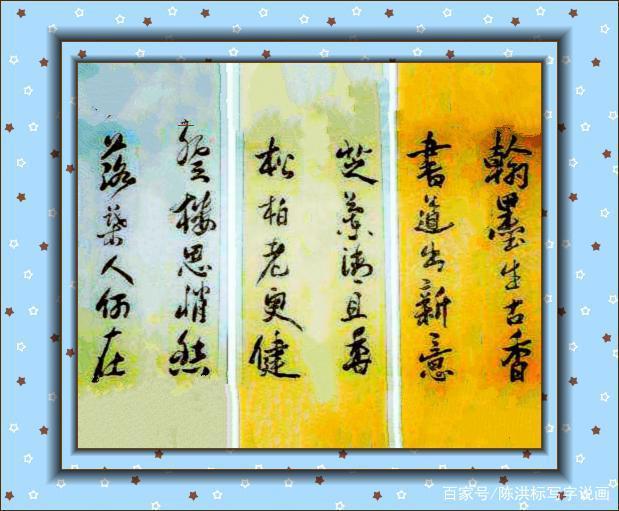 翰墨生古香
書道出新意
芝蘭 且
松柏老更健
登樓思悄然
落葉人何在
百家号/陈洪标写字说画